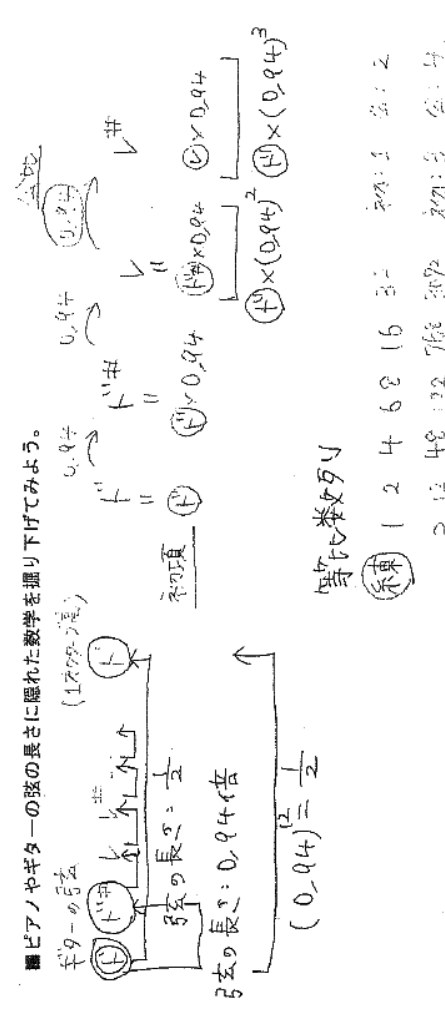 ■ピアノやギターの弦の長さに隠れた数学を掘り下げてみよう。
ギターの弦
ド ド# レ #
(1オクターブ高)
ド
弦の長さ:1/2
弦の長さ:0,94倍
(0,94)^12 = 1/2
0,94 0,94 0,94 公比
ド ド# レ レ#
= = =
ド ド×0,94 ド#×0,94 レ×0,94
初項 ド×(0,94)^2 ド×(0,94)^3
等比数列
練
1 2 4 8 16 32 初:1 公:2
3 12 48 768 初:3 公:4